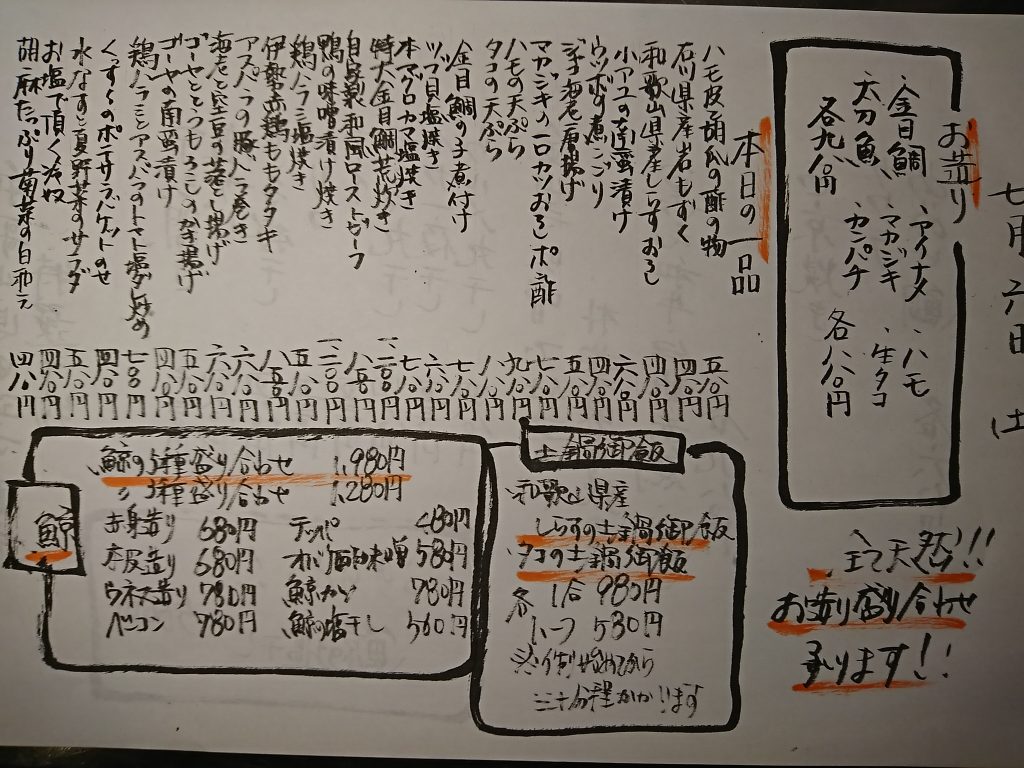 七月六日 土
お造り
金目鯛
太刀魚
各九八〇円
アイナメ
マカジキ
カンパチ
ハモ
生タコ
各八八〇円
全て天然!!!
お造り盛り合わせ
承ります!!
本日の一品
ハモ皮胡瓜の酢の物 五八〇円
石川県産岩もずく 四八〇円
和歌山県産しらすおろし 四八〇円
小アユの南蛮漬け 六八〇円
ウツボの煮こごり 四八〇円
海老唐揚げ 五八〇円
マカジキの一口カツおろしポン酢 七八〇円
ハモの天ぷら 九八〇円
タコの天ぷら 八八〇円
金目鯛の子煮付け 七八〇円
ツブ貝塩焼き 六八〇円
本マグロカマ塩焼き 七八〇円
特大金目鯛荒炊き
自家製和風ローストビーフ
鴨の味噌漬け焼き
鶏ハラミ塩焼き 五八〇円
伊勢赤鶏ももタタキ 八五〇円
アスパラの豚バラ巻き 六八〇円
海老と空豆の落し揚げ 六八〇円
ゴーヤととうもろこしのかき揚げ 五八〇円
ゴーヤの南蛮漬け 四八〇円
鶏ハラミとアスパラのトマト塩ダレ炒め 七八〇円
くんずくのポテサラバケットのせ 四八〇円
水なすと夏野菜のサラダ 五八〇円
お塩で頂く冷奴 四八〇円
胡麻たっぷり菊菜の白和え 四八〇円
土鍋御飯
和歌山県産
しらすの土鍋御飯
タコの土鍋御飯
各 1合 980円
ハーフ 530円
※作り始めてから
三十分程かかります
鯨
鯨の5種盛り合わせ 1,980円
〃 3種盛り合わせ 1,280円
赤身造り 680円 テッパ 480円
本皮造り 680円 オバ酢味噌 580円
ウネス造り 780円 鯨カツ 780円
ベーコン 780円 鯨の塩干し 560円